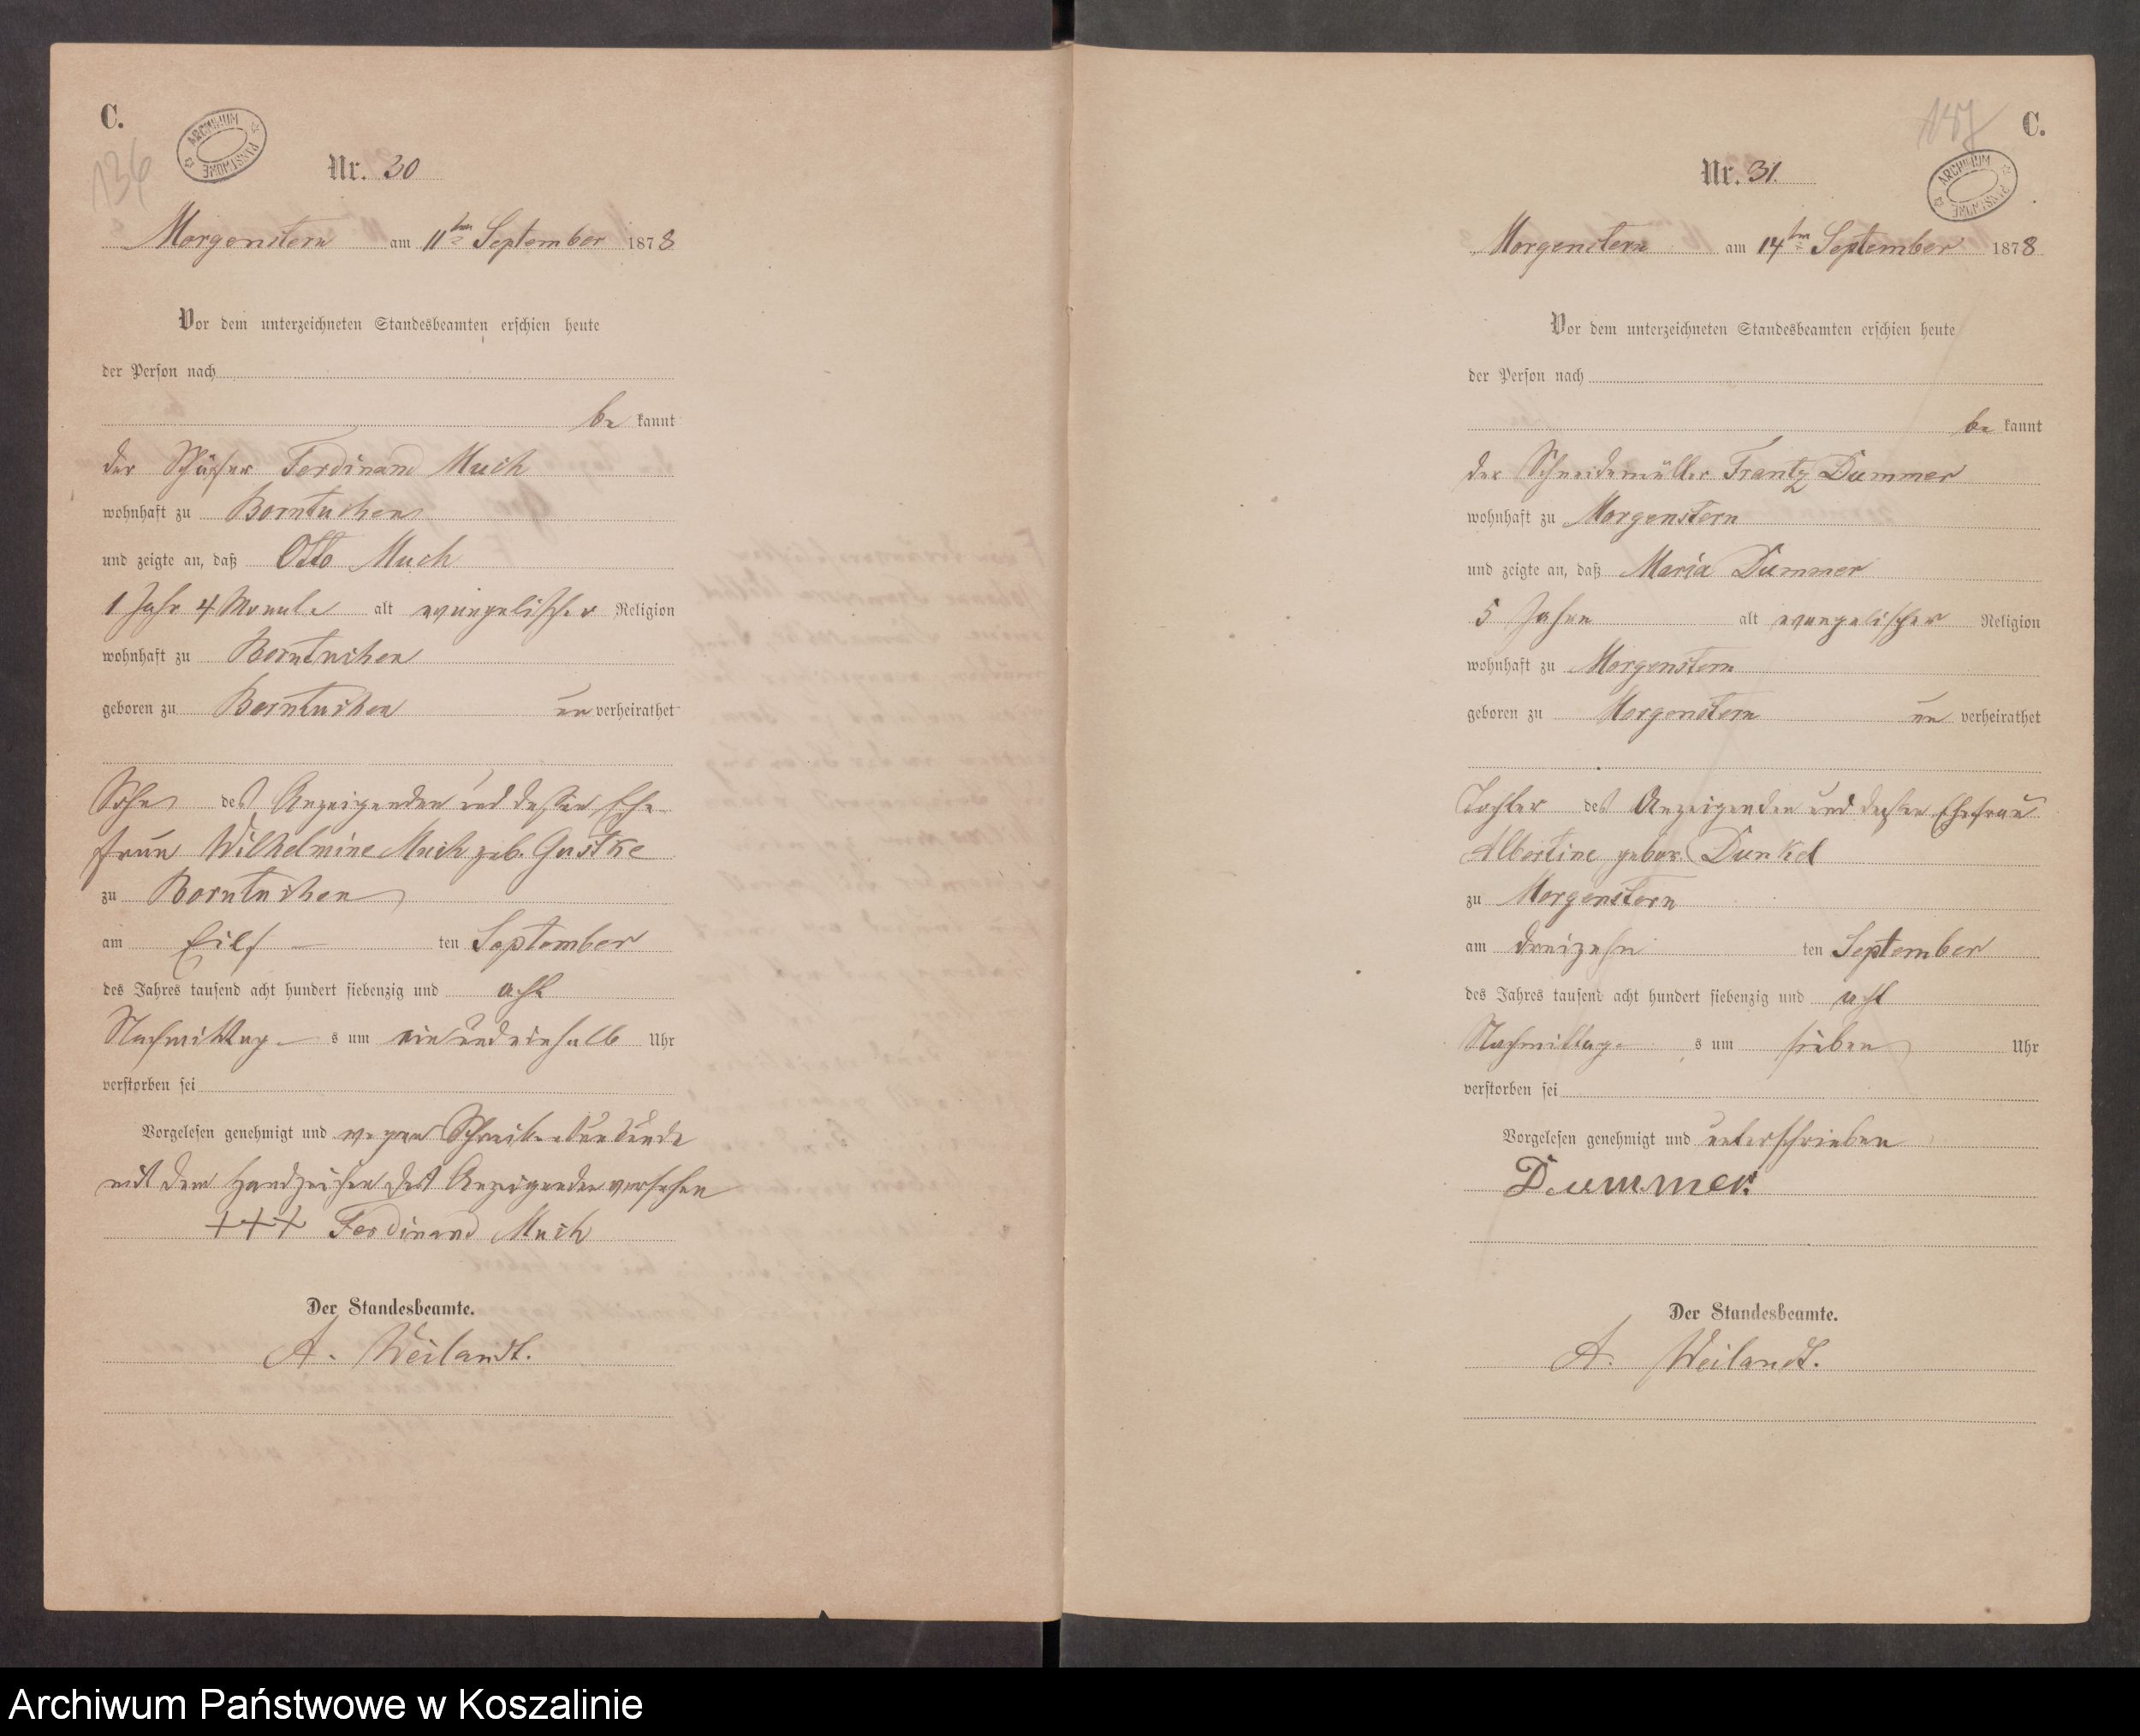 C.
136
ARCHIWUM PAŃSTWOWE
Nr. 30
Morgenstern am 11ten September 1878
Vor dem unterzeichneten Standesbeamten erschien heute
der Person nach
be kannt
der Schäfer Ferdinand Much
wohnhaft zu Borntuchen
und zeigte an, daß Otto Much
1 Jahr 4 Monate alt evangelischer Religion
wohnhaft zu Borntuchen
geboren zu Borntuchen un verheirathet
Sohn des Anzeigenden und dessen Ehe-
frau Wilhelmine Much geb. Gustke
zu Borntuchen
am Eilf ten September
des Jahres tausend acht hundert siebenzig und acht
Nachmittag s um ein und einhalb Uhr
verstorben sei
Vorgelesen genehmigt und wegen Schreibensunkunde
mit dem Handzeichen des Anzeigenden versehen
+++ Ferdinand Much
Der Standesbeamte.
A. Weilandt.
C.
137
ARCHIWUM PAŃSTWOWE
Nr. 31.
Morgenstern am 14ten September 1878
Vor dem unterzeichneten Standesbeamten erschien heute
der Person nach
be kannt
der Schneidemüller Frantz Dummer
wohnhaft zu Morgenstern
und zeigte an, daß Maria Dummer
5 Jahre alt evangelischer Religion
wohnhaft zu Morgenstern
geboren zu Morgenstern un verheirathet
Tochter des Anzeigenden und dessen Ehefrau
Albertine gebor. Dunkel
zu Morgenstern
am dreizehn ten September
des Jahres tausend acht hundert siebenzig und acht
Nachmittag s um sieben Uhr
verstorben sei
Vorgelesen genehmigt und unterschrieben
Dummer.
Der Standesbeamte.
A. Weilandt.
Archiwum Państwowe w Koszalinie